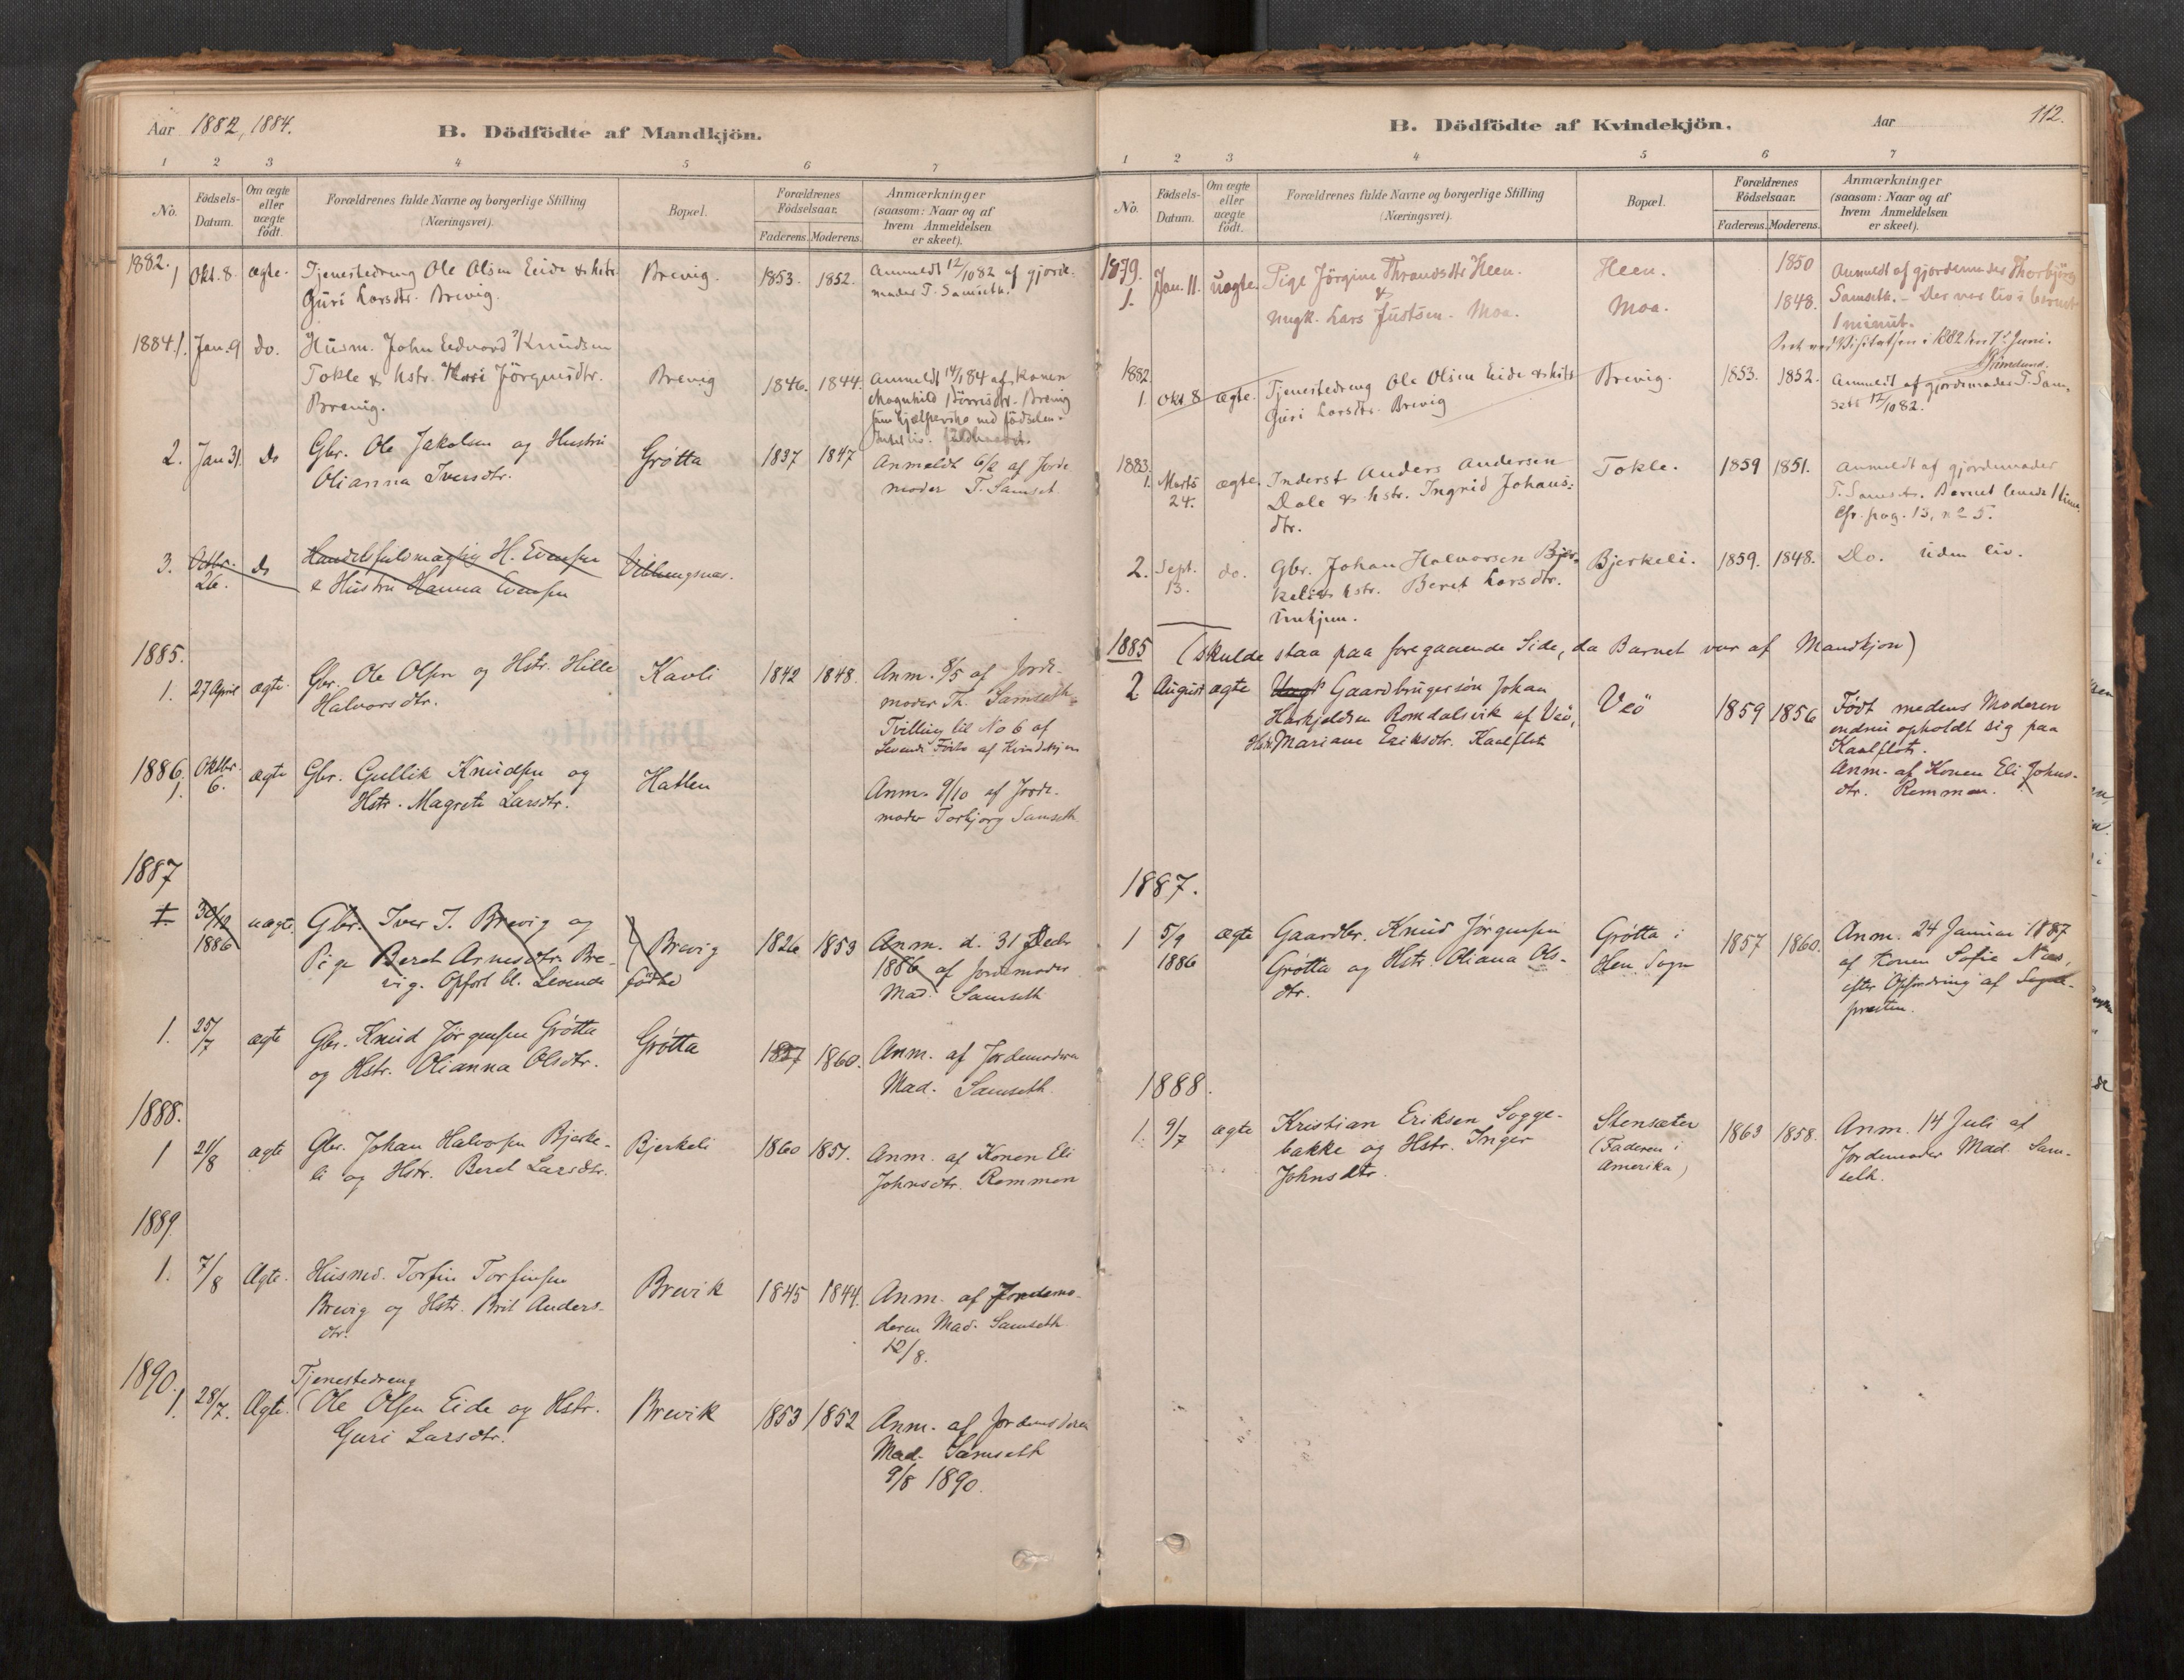 Aar 1882, 1884.
B. Dödfödte af Mandkjön.
1 2 3 4 5 6 7
No.
Födsels-
Datum.
Om ægte
eller
uægte
födt.
Forældrenes fulde Navne og borgerlige Stilling
(Næringsvei).
Bopæl.
Forældrenes
Födselsaar.
Faderens. Moderens.
Anmærkninger
(saasom: Naar og af
hvem Anmeldelsen
er skeet).
1882.
1 Okt. 8. ægte. Tjenestedreng Ole Olsen Eide & hstr. Brevig. 1853. 1852. Anmeldt 12/10 82 af gjorde-
Guri Larsdtr. Brevig. moder T. Samseth.
1884. 1. Jan. 9 do. Husm. John Edvard Knudsen
Tokle & hstr. Jörgensdtr. Brevig 1846. 1844. Anmeldt 14/1 84 af konen
Brevig. Magnhild Brevig
som hjælpe ved födselen.
2. Jan 31. Do Gbr. Ole Jakobsen og Hustru Grøtta 1837 1847 Anmeldt 6/2 af Jorde
Olianna Iversdtr. moder T. Samset.
3. Octbr. do Handelsfuldmægtig H. Evensen
26. & Hustru Hanna Evensen
1885.
1. 27 April ægte. Gbr. Ole Olsen og Hstr. Hille Kavli 1842 1848. Anm. 8/5 af Jorde-
Halvorsdtr. moder Th. Samseth
Tvilling til No 6 af
Levende Fødte af Kvindekjøn
1886. Oktbr.
1. 6. ægte Gbr. Gullik Knudsen og Hatlen
Hstr. Magrete Larsdtr. Anm. 9/10 af Jorde-
moder Torbjorg Samseth
1887
1. 30/12 uægte. Gbr. Iver I. Brevig og
1886 Pige Beret Arnesdtr. Bre- Brevig 1826 1853 Anm. d. 31 Decbr
vig. Opført bl. Levende fødte 1886 af Jordemoder
Mad. Samseth
1. 25/7 ægte Gbr. Knud Jørgensen Grøtta Grøtta 1857 1860. Anm. af Jordemodren
og Hstr. Olianna Olsdtr. Mad. Samseth.
1888.
1 21/8 ægte Gbr. Johan Halvorsen Bjerke- Bjerkeli 1860 1851. Anm. af Konen Eli
li og Hstr. Beret Larsdtr. Johnsdtr. Remmen
1889.
1. 7/8 Ægte. Husmd. Torfin Torfinsen
Brevig og Hstr. Brit Anders- Brevik 1845 1844. Anm. af Jordemo-
dtr. deren Mad. Samseth
12/8.
1890. Tjenestedreng
1. 28/7. Ægte. (Ole Olsen Eide og Hstr. Brevik 1853 1852 Anm. af Jordemoderen
Guri Larsdtr. Mad. Samseth
9/8 1890.
112.
B. Dödfödte af Kvindekjön.
Aar
1 2 3 4 5 6 7
No.
Födsels-
Datum.
Om ægte
eller
uægte
födt.
Forældrenes fulde Navne og borgerlige Stilling
(Næringsvei).
Bopæl.
Forældrenes
Födselsaar.
Faderens. Moderens.
Anmærkninger
(saasom: Naar og af
hvem Anmeldelsen
er skeet).
1879.
1. Jan. 11. uægte. Pige Jörgine Thrandsdtr Heen. Heen. 1850 Anmeldt af gjordemoder Thorbjörg
& Samseth. - Der var liv i barnet
Ungk. Lars Justsen. Moa. Moa. 1848. 1 minut.
ved Visitatsen i 1882 den 7de Juni.
1882.
1. Okt. 8 ægte. Tjenestedreng Ole Olsen Eide & hstr. Brevig. 1853. 1852. Anmeldt af gjordemoder T. Sam-
Guri Larsdtr. Brevig seth 12/10 82.
1883.
1. Marts ægte. Inderst Anders Andersen Tokle. 1859 1851. Anmeldt af gjordemoder
24. Dale & hstr. Ingrid Johans- T. Samseth. Barnet levede 1 time.
dtr. Cfr. pag. 13, n 25.
2. Sept. do. Gbr. Johan Halvorsen Bjer- Bjerkeli. 1859. 1848. Do. uden liv.
13. keli & hstr. Beret Larsdtr.
1885 (Skulde staa paa foregaaende Side, da Barnet var af Mandkjøn)
2. August ægte Ungk Gaardbrugersøn Johan Veö 1859 1856 Født medens Moderen
Romdalsvik af Veö, endnu opholdt sig paa
Hstr Mariane Eriksdtr. Kaalflot Kaalflot.
Anm. af Konen Eli Johns-
dtr. Remmen.
1887.
1 5/9 ægte Gaardbr. Knud Jørgensen Grøtta i 1857 1860. Anm. 24 Januar 1887
1886 Grøtta og Hstr. Oliana Ols- Hen Sogn af Konen Sofie Næs,
dtr. efter Opfordring af Sogne-
præsten.
1888.
1. 9/7 ægte Kristian Eriksen Sogge- Stensæter 1863 1858. Anm. 14 Juli af
bakke og Hstr. Inger (Faderen i Jordemoder Mad. Sam-
Johnsdtr. Amerika) seth.